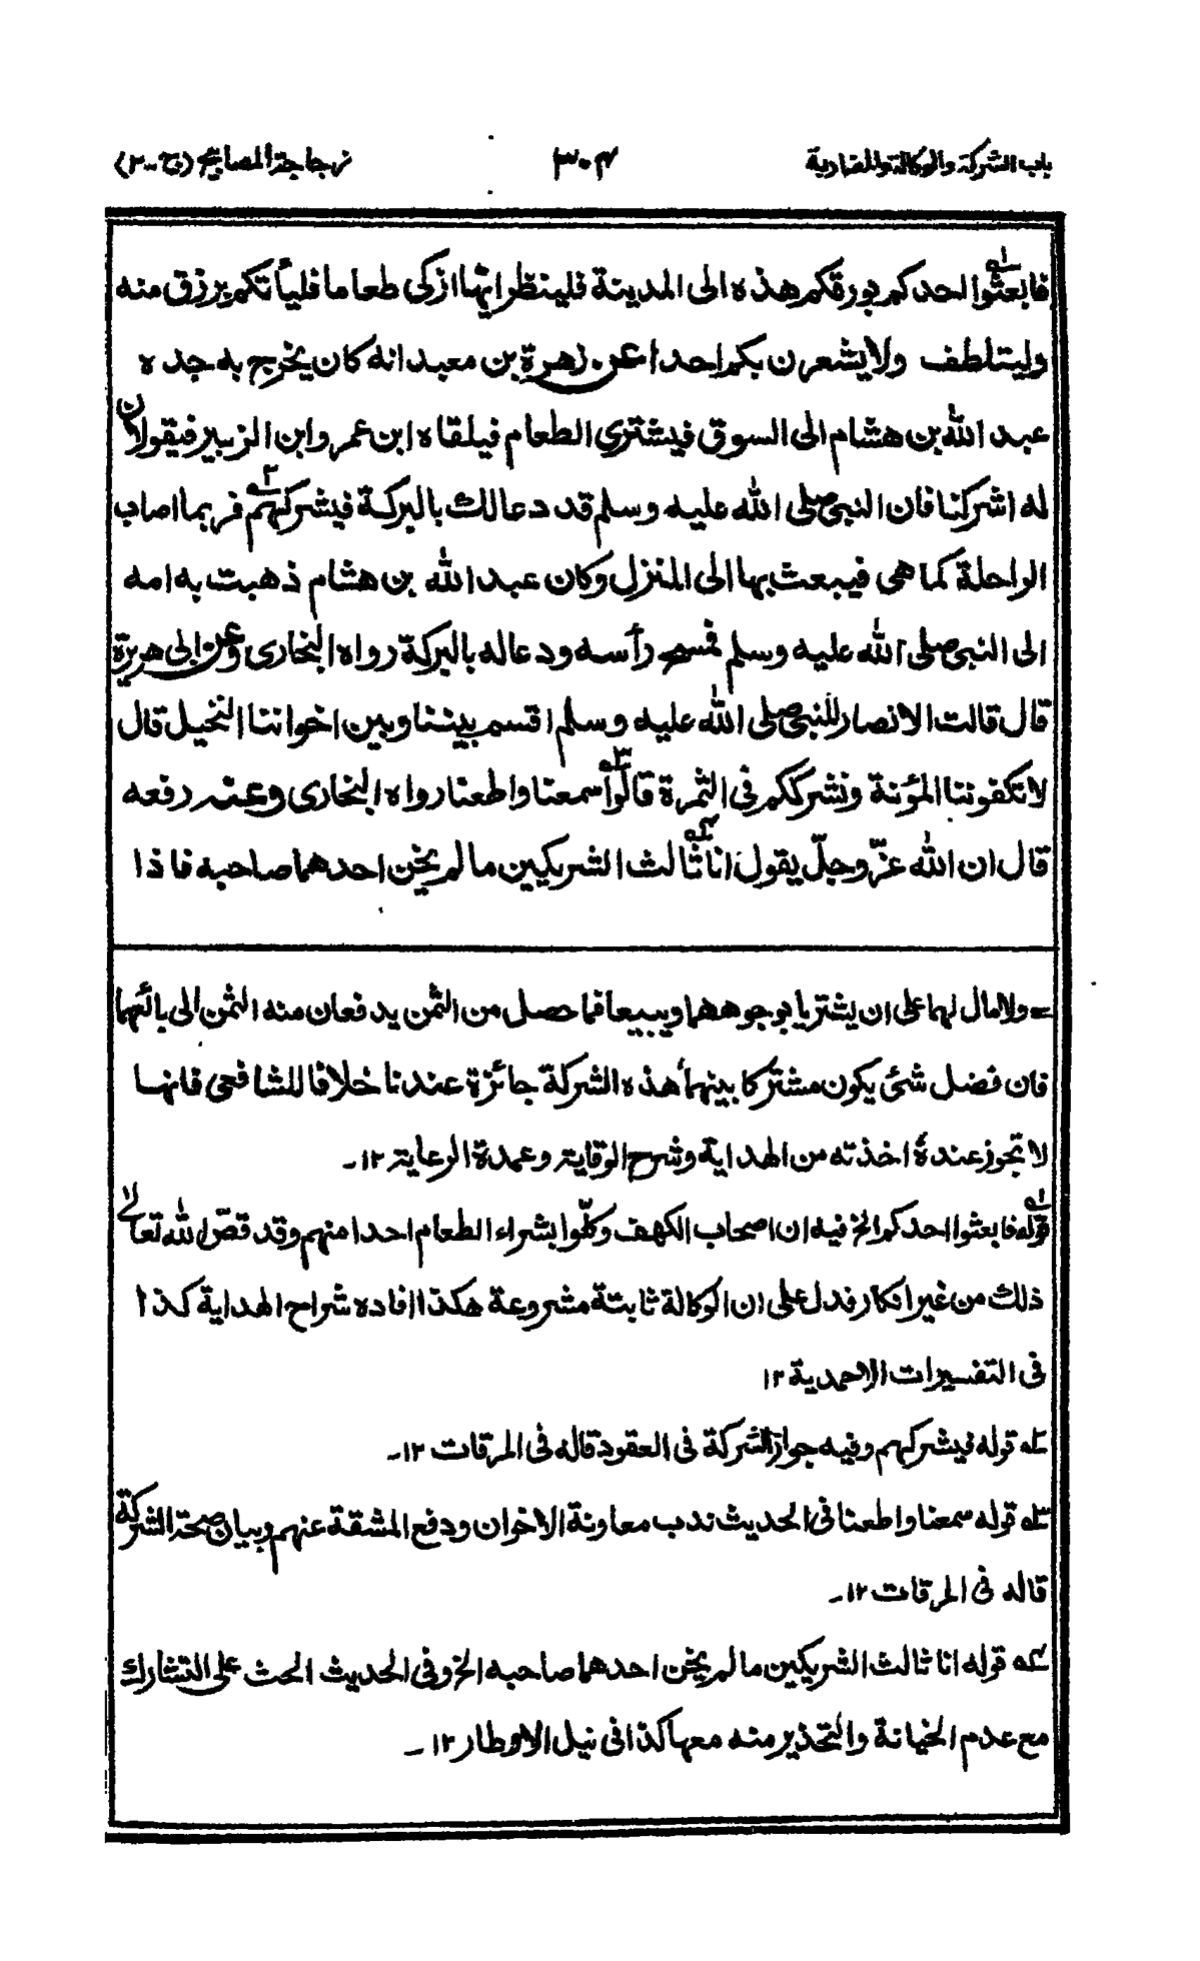 باب الشركة والوكالة والمضاربة
٣٠٤
زجاجة المصابيح (ج-٢)
فابعثوا احدكم بورقكم هذه الى المدينة فلينظر ايها ازكى طعاما فليأتكم برزق منه
وليتلطف ولا يشعرن بكم احدا عن زهرة بن معبد انه كان يخرج به جده
عبد الله بن هشام الى السوق فيشترى الطعام فيلقاه ابن عمر وابن الزبير فيقولان
له اشركنا فان النبى صلى الله عليه وسلم قد دعا لك بالبركة فيشركهم فربما اصاب
الراحلة كما هى فيبعث بها الى المنزل وكان عبد الله بن هشام ذهبت به امه
الى النبى صلى الله عليه وسلم فمسح رأسه ودعا له بالبركة رواه البخارى وعن ابى هريرة
قال قالت الانصار للنبى صلى الله عليه وسلم اقسم بيننا وبين اخواننا النخيل قال
لا تكفوننا المؤنة ونشرككم فى الثمرة قالوا سمعنا واطعنا رواه البخارى وعنه رفعه
قال ان الله عزّ وجلّ يقول انا ثالث الشريكين ما لم يخن احدهما صاحبه فاذا
= ولا مال لهما على ان يشتريا بوجوههما ويبيعا فما حصل من الثمن يدفعان منه الثمن الى بائعهما
فان فضل شئ يكون مشتركا بينهما هذه الشركة جائزة عندنا خلافا للشافعى فانها
لا تجوز عنده اخذته من الهداية وشرح الوقاية وعمدة الرعاية ١٢-
١ه قوله فابعثوا احدكم الخ فيه ان اصحاب الكهف وكلّوا بشراء الطعام احدا منهم وقد قصّ الله تعالى
ذلك من غير انكار فدل على ان الوكالة ثابتة مشروعة هكذا افاده شراح الهداية كذا
فى التفسيرات الاحمدية ١٢
٢ه قوله فيشركهم وفيه جواز الشركة فى العقود قاله فى المرقات ١٢-
٣ه قوله سمعنا واطعنا فى الحديث ندب معاونة الاخوان ودفع المشقة عنهم وبيان صحة الشركة
قاله فى المرقات ١٢-
٤ه قوله انا ثالث الشريكين ما لم يخن احدهما صاحبه الخ وفى الحديث الحث على التشارك
مع عدم الخيانة والتحذير منه معها كذا فى نيل الاوطار ١٢-